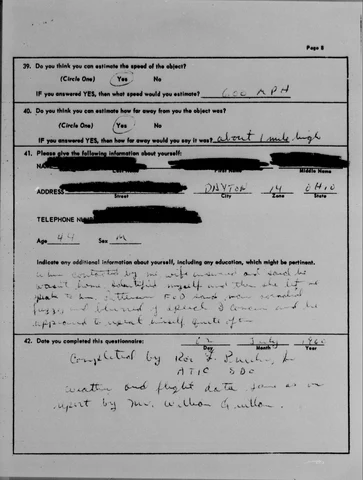 Page 8
39. Do you think you can estimate the speed of the object?
(Circle One) Yes No
IF you answered YES, then what speed would you estimate? 600 MPH
40. Do you think you can estimate how far away from you the object was?
(Circle One) Yes No
IF you answered YES, then how far away would you say it was? about 1 mile high
41. Please give the following information about yourself:
Last Name First Name Middle Name
ADDRESS DAYTON 14 OHIO
Street City Zone State
TELEPHONE NUMBER
Age 44 Sex M
Indicate any additional information about yourself, including any education, which might be pertinent.
When contacted by me wife answered and said he
wasn't home. Identified myself and then she let me
speak to him.
and blurred of speech and he
appeared to repeat himself quite often
42. Date you completed this questionnaire: July 1960
Day Month Year
Completed by
ATIC SDO
weather and flight data same as in
report by Mr. William